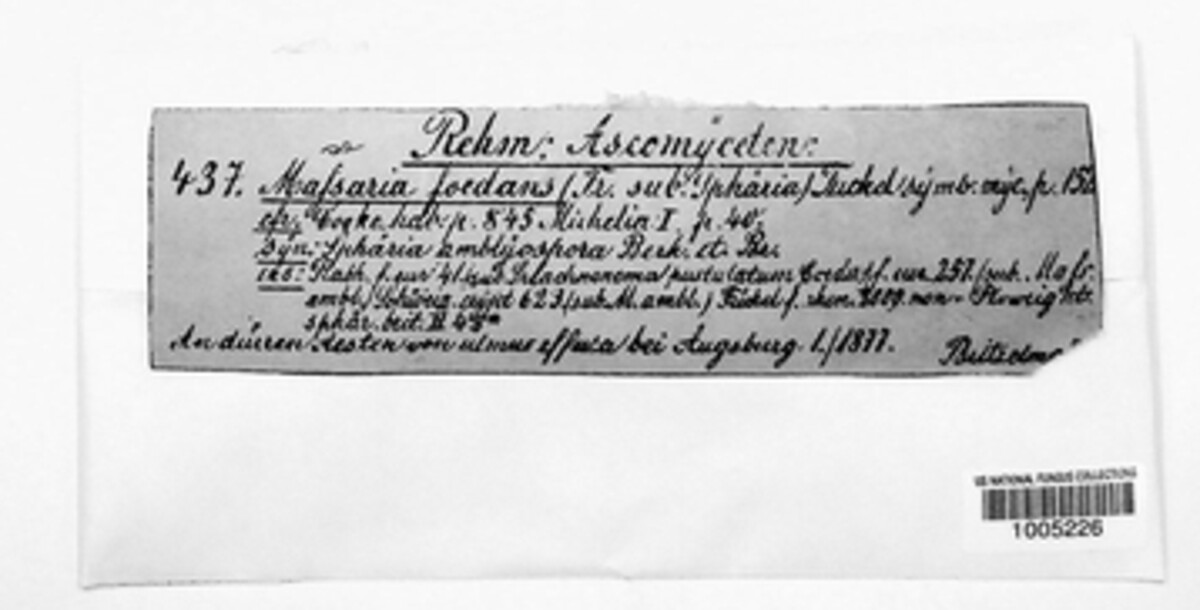 Rehm: Ascomyceten:
437. Maſsaria foedans (Fr. sub. Sphäria) Fuckel symb. myc. p. 153
cfr. Cooke hdb. p. 845 Michelia I, p. 40.
Syn: Sphäria amblyospora Berk. et. Br.
exs: Rabh. f. eur 41 (sub pustulatum Corda) f. eur 257. (sub. Maſs.
ambl.) Schweiz. crypt 623 (sub M. ambl.) Fuckel f. rhen. non
sphär. beit. II
An dürren Aesten von ulmus effusa bei Augsburg. 1./1877.
US NATIONAL FUNGUS COLLECTIONS
1005226